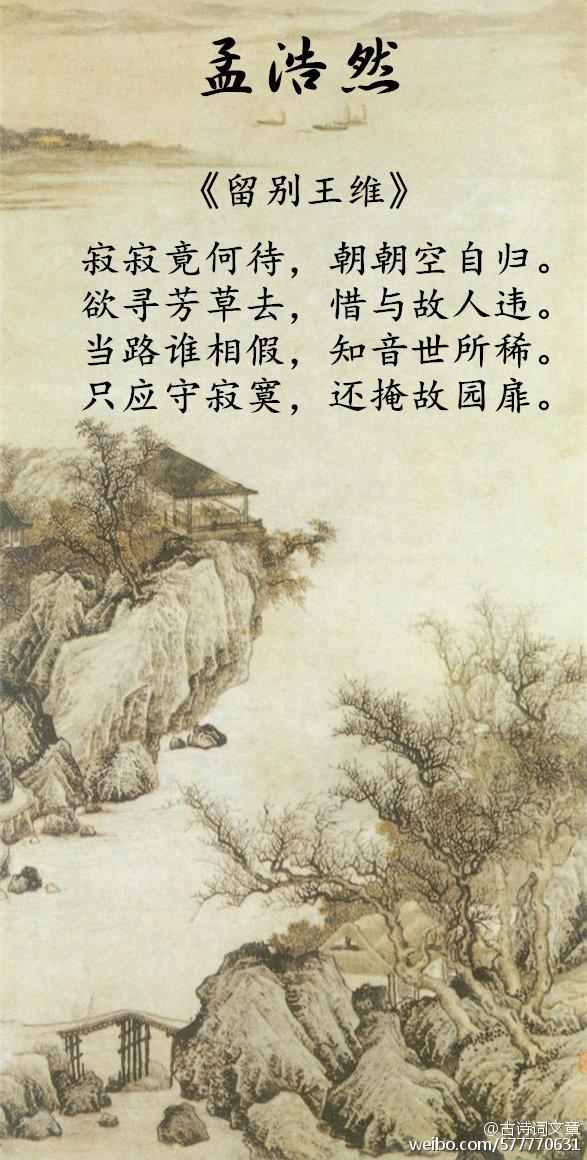 孟浩然
《留别王维》
寂寂竟何待，朝朝空自归。
欲寻芳草去，惜与故人违。
当路谁相假，知音世所稀。
只应守寂寞，还掩故园扉。
@古诗词文章
weibo.com/577770631